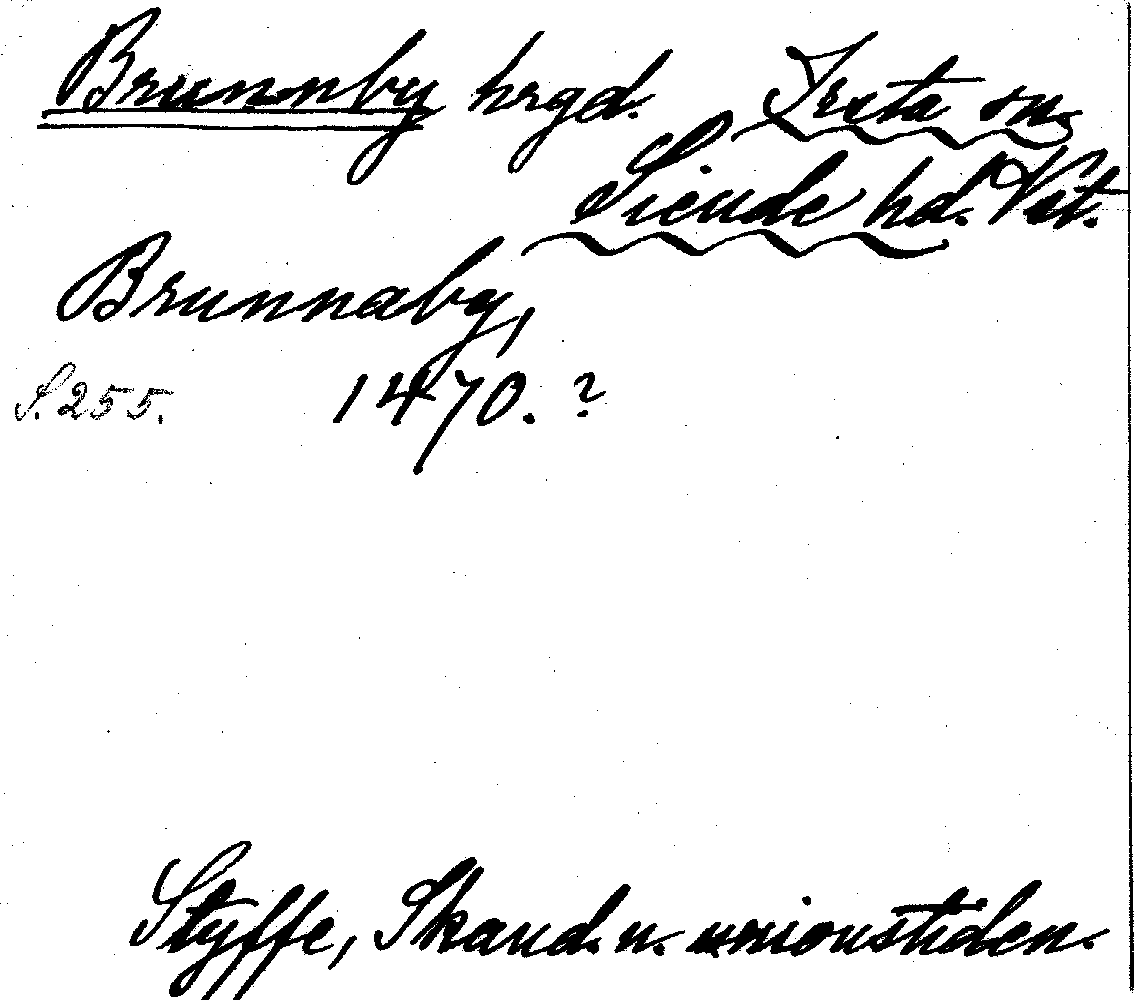 Brunnby hrgd. Irsta sn,
Siende hd. Vst.
Brunnaby,
S. 255. 1470. ?
Styffe, Skand. u. unionstiden.